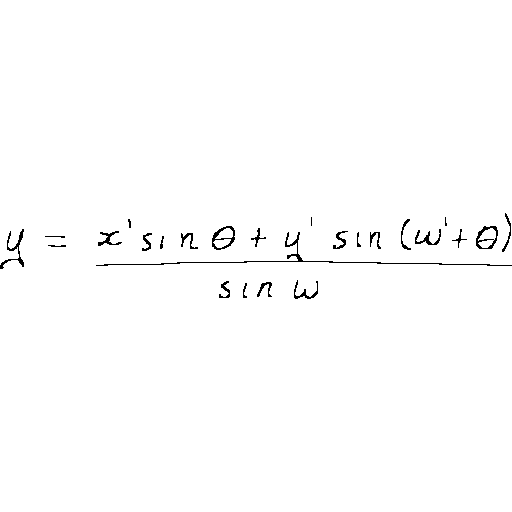 y = \frac{x' \sin \theta + y' \sin (\omega' + \theta)}{\sin \omega}